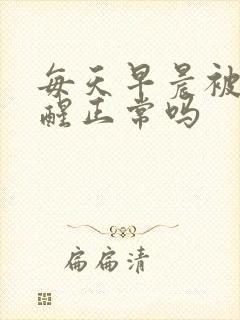 每天早晨被
醒正常吗
扁扁清